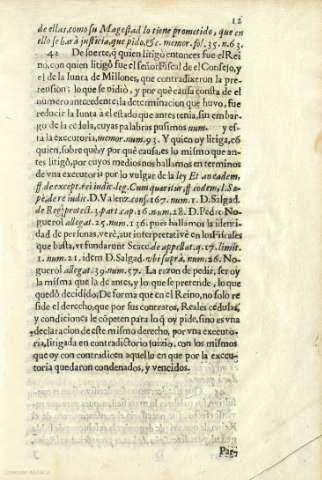 12
de ellas, como su Magestad lo tiene prometido, que en
ello se hará justicia, que pido, &c. memor. fol. 35. n. 63.
42 De suerte, q̃ quien litigò entonces fue el Rei
no, con quien litigò fue el señor Fiscal de el Consejo, y
el de la Iunta de Millones, que contradixeron la pre-
tension: lo que se pidiò, y por què causa consta de el
numero antecedente: la determinacion que huvo, fue
reducir la Iunta à el estado que antes tenia, sin embar-
go de la cedula, cuyas palabras pusimos num. y es-
ta la executoria, memor. num. 93. Y quien oy litiga, cõ
quien, sobre què, y por què causa, es lo mismo que an-
tes litigò, por cuyos medios nos hallamos en terminos
de vna executoria por lo vulgar de la ley Et an eadem,
ff. de except. rei iudic. leg. Cum quæritur, ff. eodem, l. Sæ-
pè, de re iudic. D. Valenz. cons. 167. num. 1. D. Salgad.
de Reg. protect. 3. part. cap. 16. num. 18. D. Pedro No-
guerol allegat. 25. num. 136. pues hallamos la identi-
dad de personas, verè, aut interpretativè en los Fiscales
que basta, vt fundarunt Scacc. de appellat. q. 17. limit.
1. num. 21. idem D. Salgad. vbi suprà, num. 26. No-
guerol allegat. 39. num. 57. La razon de pedir, ser oy
la misma que la de antes, y lo que se pretende, lo que
quedò decidido, De forma que en el Reino, no solo re
side el derecho, que por sus contratos, Reales cedulas,
y condiciones le cõpeten para lo q̃ oy pide, sino es vna
declaracion de este mismo derecho, por vna executo-
ria, litigada en contradictorio juizio, con los mismos
que oy con contradicen aquello en que por la execu-
toria quedaron condenados, y vencidos.
Pag7